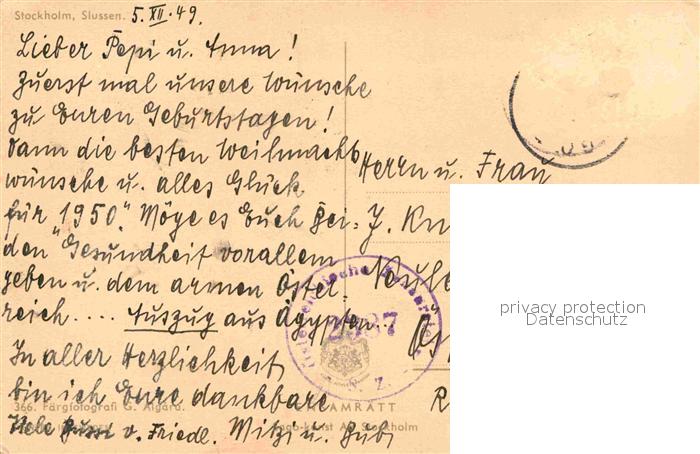 Stockholm, Slussen. 5. XII. 49.
Lieber Pepi u. Anna!
Zuerst mal unsere Wünsche
zu Euren Geburtstagen!
Dann die besten Weihnachts
wünsche u. alles Glück
für 1950. Möge es Euch bei-
den Gesundheit vorallem
geben u. dem armen Öster-
reich.... Auszug aus Ägypten..
In aller Herzlichkeit
bin ich Eure dankbare
v. Friedl. Mitzi u.
Herrn u. Frau
J.
Österreichische Zensurstelle
2087
N. Z.
366. Färgfotografi G. Algård.
Stockholm
privacy protection
Datenschutz